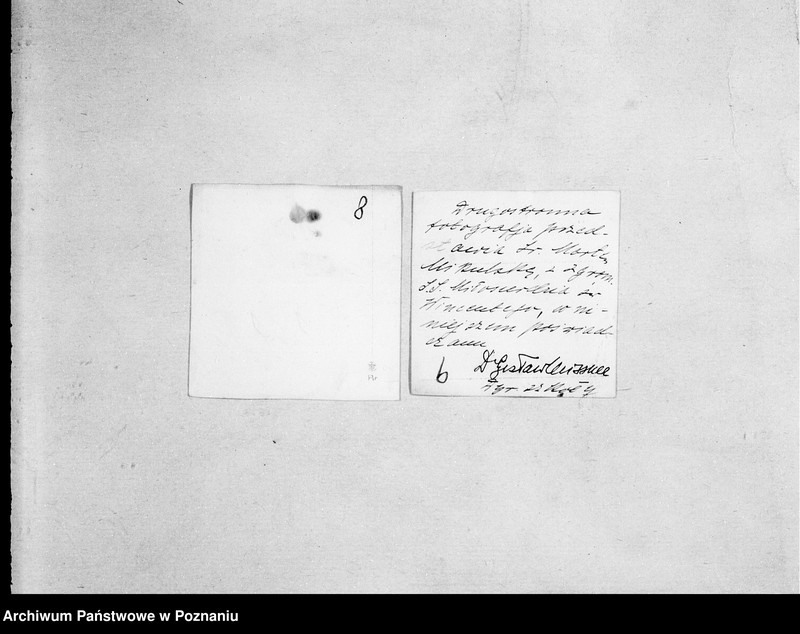 8
Drugostronna
fotografja przed-
stawia Sr. Martę
Mikulską, z zgrom.
S.S. Miłosierdzia św.
Wincentego, co ni-
niejszem poświad-
czam
6
Dyr szkoły
Archiwum Państwowe w Poznaniu